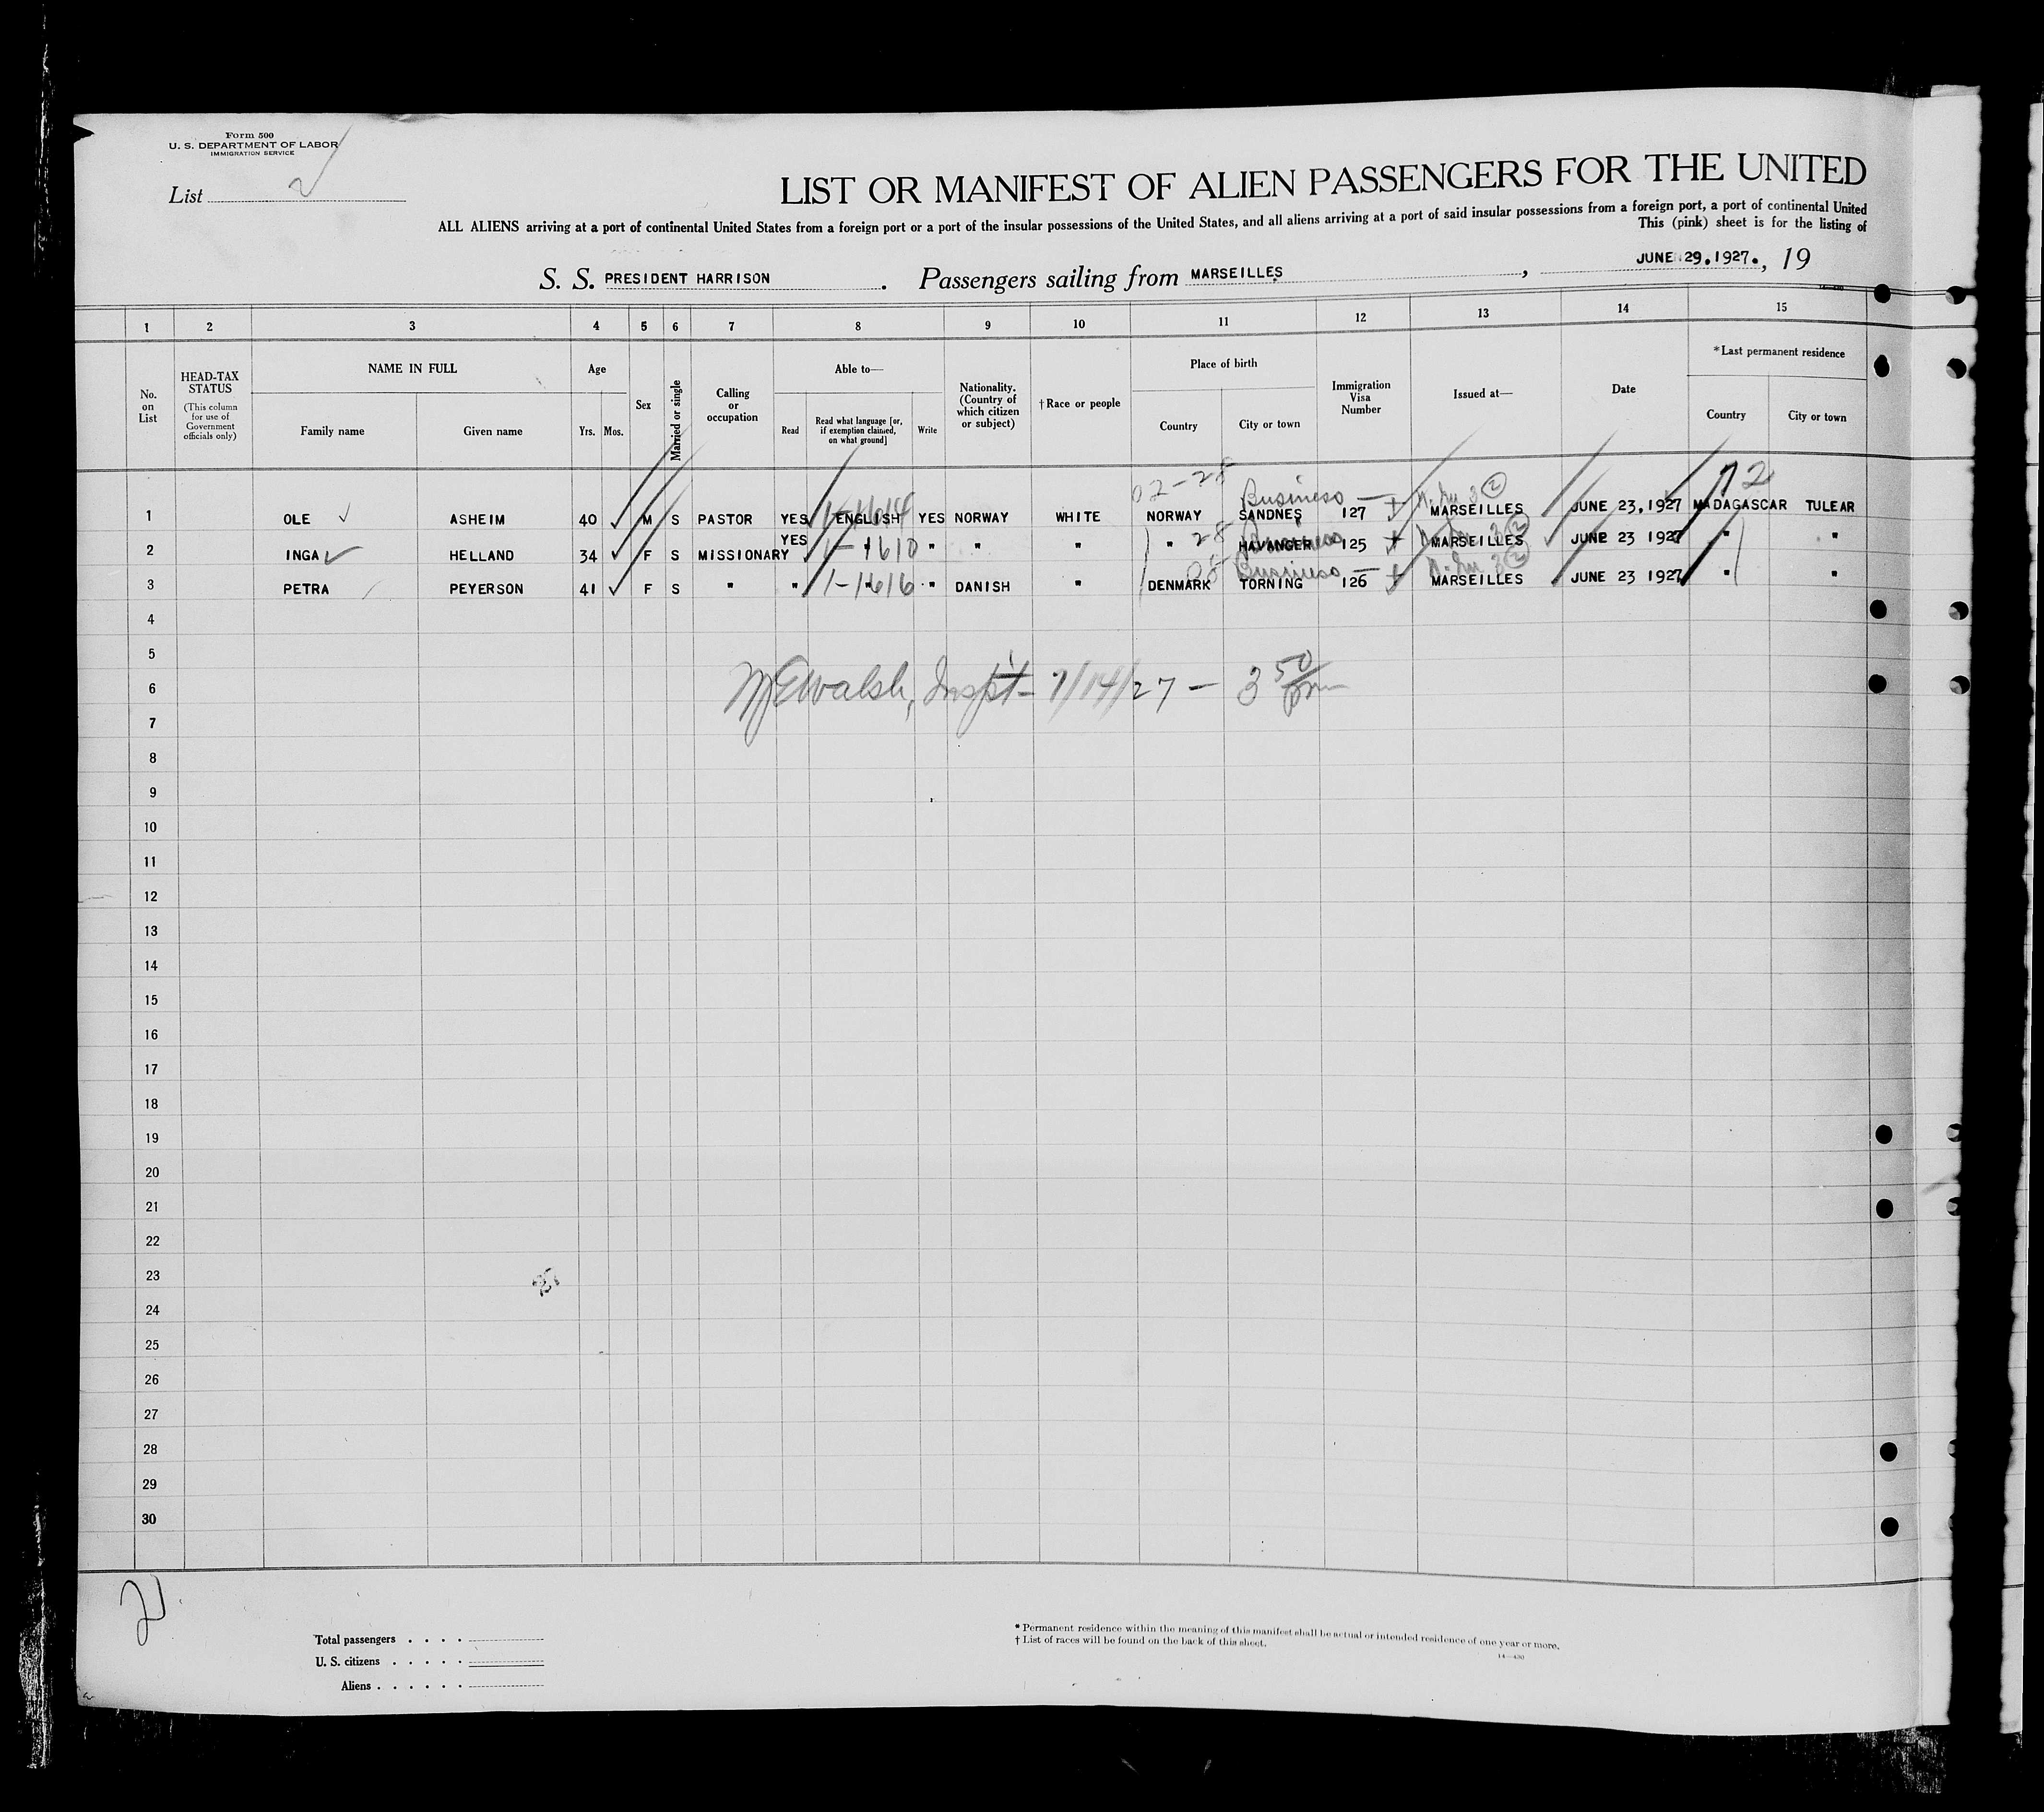 Form 500
U. S. DEPARTMENT OF LABOR
IMMIGRATION SERVICE
List 2
LIST OR MANIFEST OF ALIEN PASSENGERS FOR THE UNITED
ALL ALIENS arriving at a port of continental United States from a foreign port or a port of the insular possessions of the United States, and all aliens arriving at a port of said insular possessions from a foreign port, a port of continental United
This (pink) sheet is for the listing of
S. S. PRESIDENT HARRISON . Passengers sailing from MARSEILLES , JUNE 29.1927. , 19
1 2 3 4 5 6 7 8 9 10 11 12 13 14 15
No. on List
HEAD-TAX STATUS
(This column for use of Government officials only)
NAME IN FULL
Family name
Given name
Age
Yrs. Mos.
Sex
Married or single
Calling or occupation
Able to—
Read
Read what language [or, if exemption claimed, on what ground]
Write
Nationality. (Country of which citizen or subject)
†Race or people
Place of birth
Country
City or town
Immigration Visa Number
Issued at—
Date
*Last permanent residence
Country
City or town
02-28 Business — 2 72
1 OLE ASHEIM 40 M S PASTOR YES ENGLISH YES NORWAY WHITE NORWAY SANDNES 127 MARSEILLES JUNE 23,1927 MADAGASCAR TULEAR
YES 1-1610 28 2
2 INGA HELLAND 34 F S MISSIONARY " " " " " HAVANGER 125 MARSEILLES JUNE 23 1927 " "
1-1616 05 Business — 2
3 PETRA PEYERSON 41 F S " " " " DANISH " DENMARK TORNING 126 MARSEILLES JUNE 23 1927 " "
4
5
6 McEwalsh, Insp't- 7/14/27 — 3 50 pm
7
8
9
10
11
12
13
14
15
16
17
18
19
20
21
22
23
24
25
26
27
28
29
30
2
Total passengers . . . .
U. S. citizens . . . . .
Aliens . . . . . .
* Permanent residence within the meaning of this manifest shall be actual or intended residence of one year or more.
† List of races will be found on the back of this sheet.
14—430